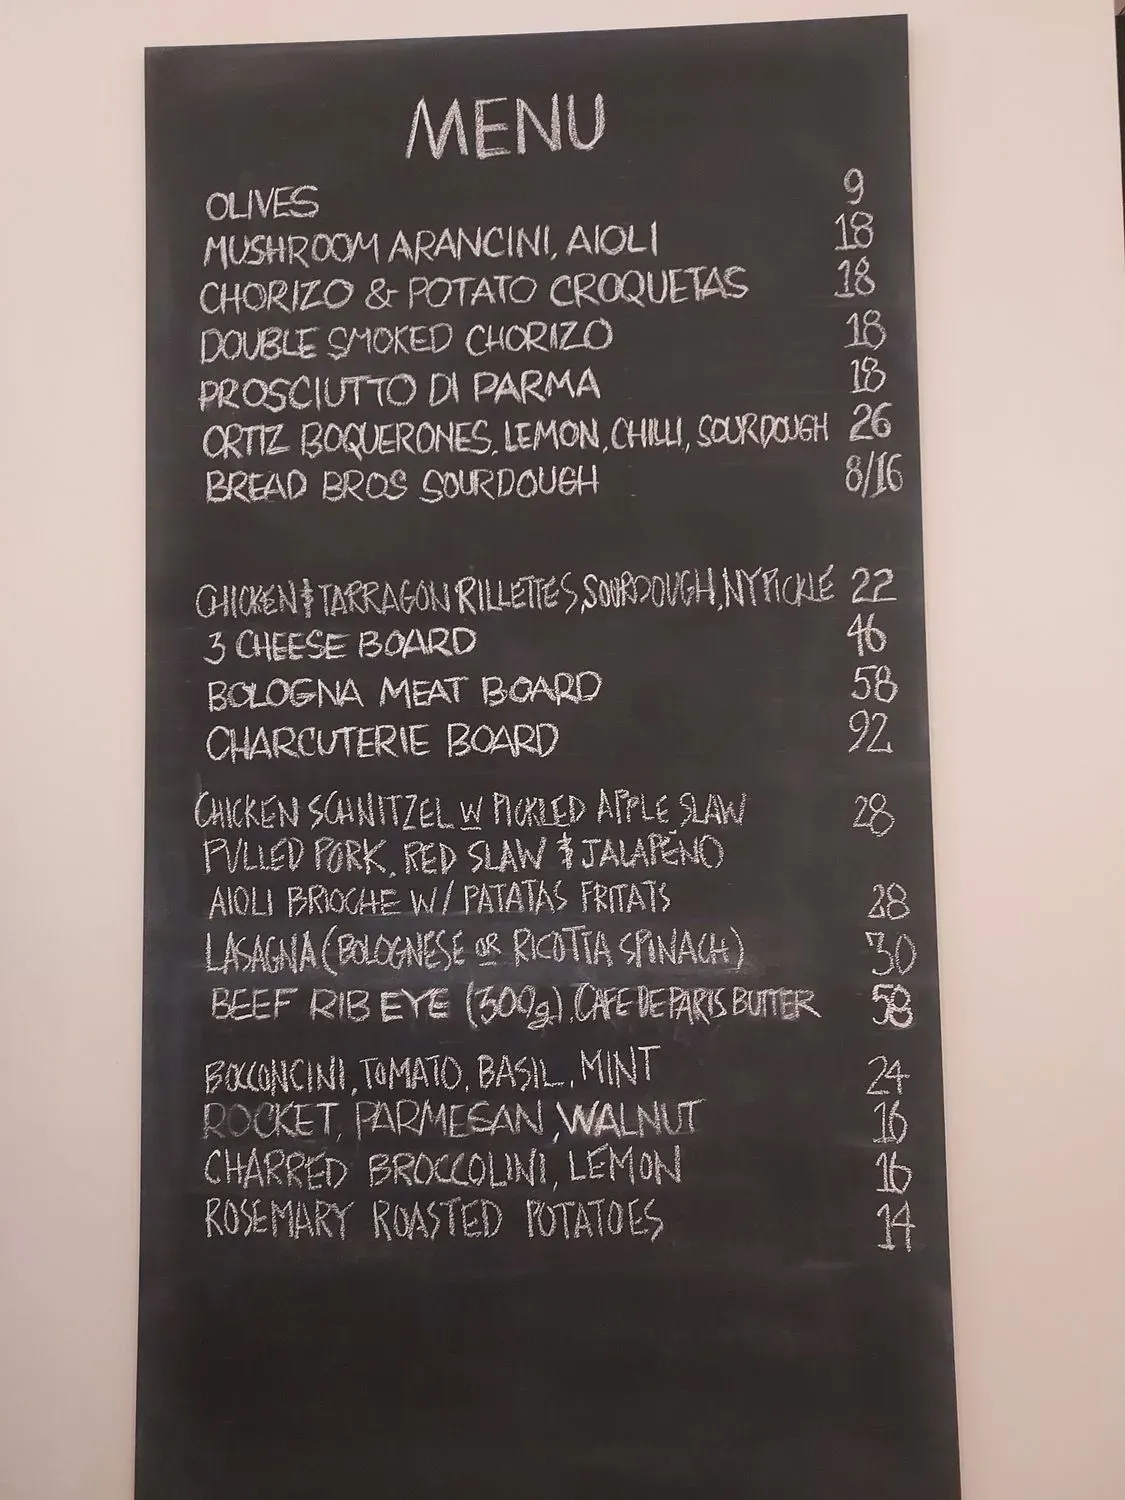 MENU
OLIVES 9
MUSHROOM ARANCINI, AIOLI 18
CHORIZO & POTATO CROQUETAS 18
DOUBLE SMOKED CHORIZO 18
PROSCIUTTO DI PARMA 18
ORTIZ BOQUERONES, LEMON, CHILLI, SOURDOUGH 26
BREAD BROS SOURDOUGH 8/16
CHICKEN & TARRAGON RILLETTES, SOURDOUGH, NY PICKLE 22
3 CHEESE BOARD 46
BOLOGNA MEAT BOARD 58
CHARCUTERIE BOARD 92
CHICKEN SCHNITZEL W PICKLED APPLE SLAW 28
PULLED PORK, RED SLAW & JALAPEÑO
AIOLI BRIOCHE W/ PATATAS FRITATS 28
LASAGNA (BOLOGNESE OR RICOTTA SPINACH) 30
BEEF RIB EYE (300g), CAFE DE PARIS BUTTER 58
BOCCONCINI, TOMATO, BASIL, MINT 24
ROCKET, PARMESAN, WALNUT 16
CHARRED BROCCOLINI, LEMON 16
ROSEMARY ROASTED POTATOES 14